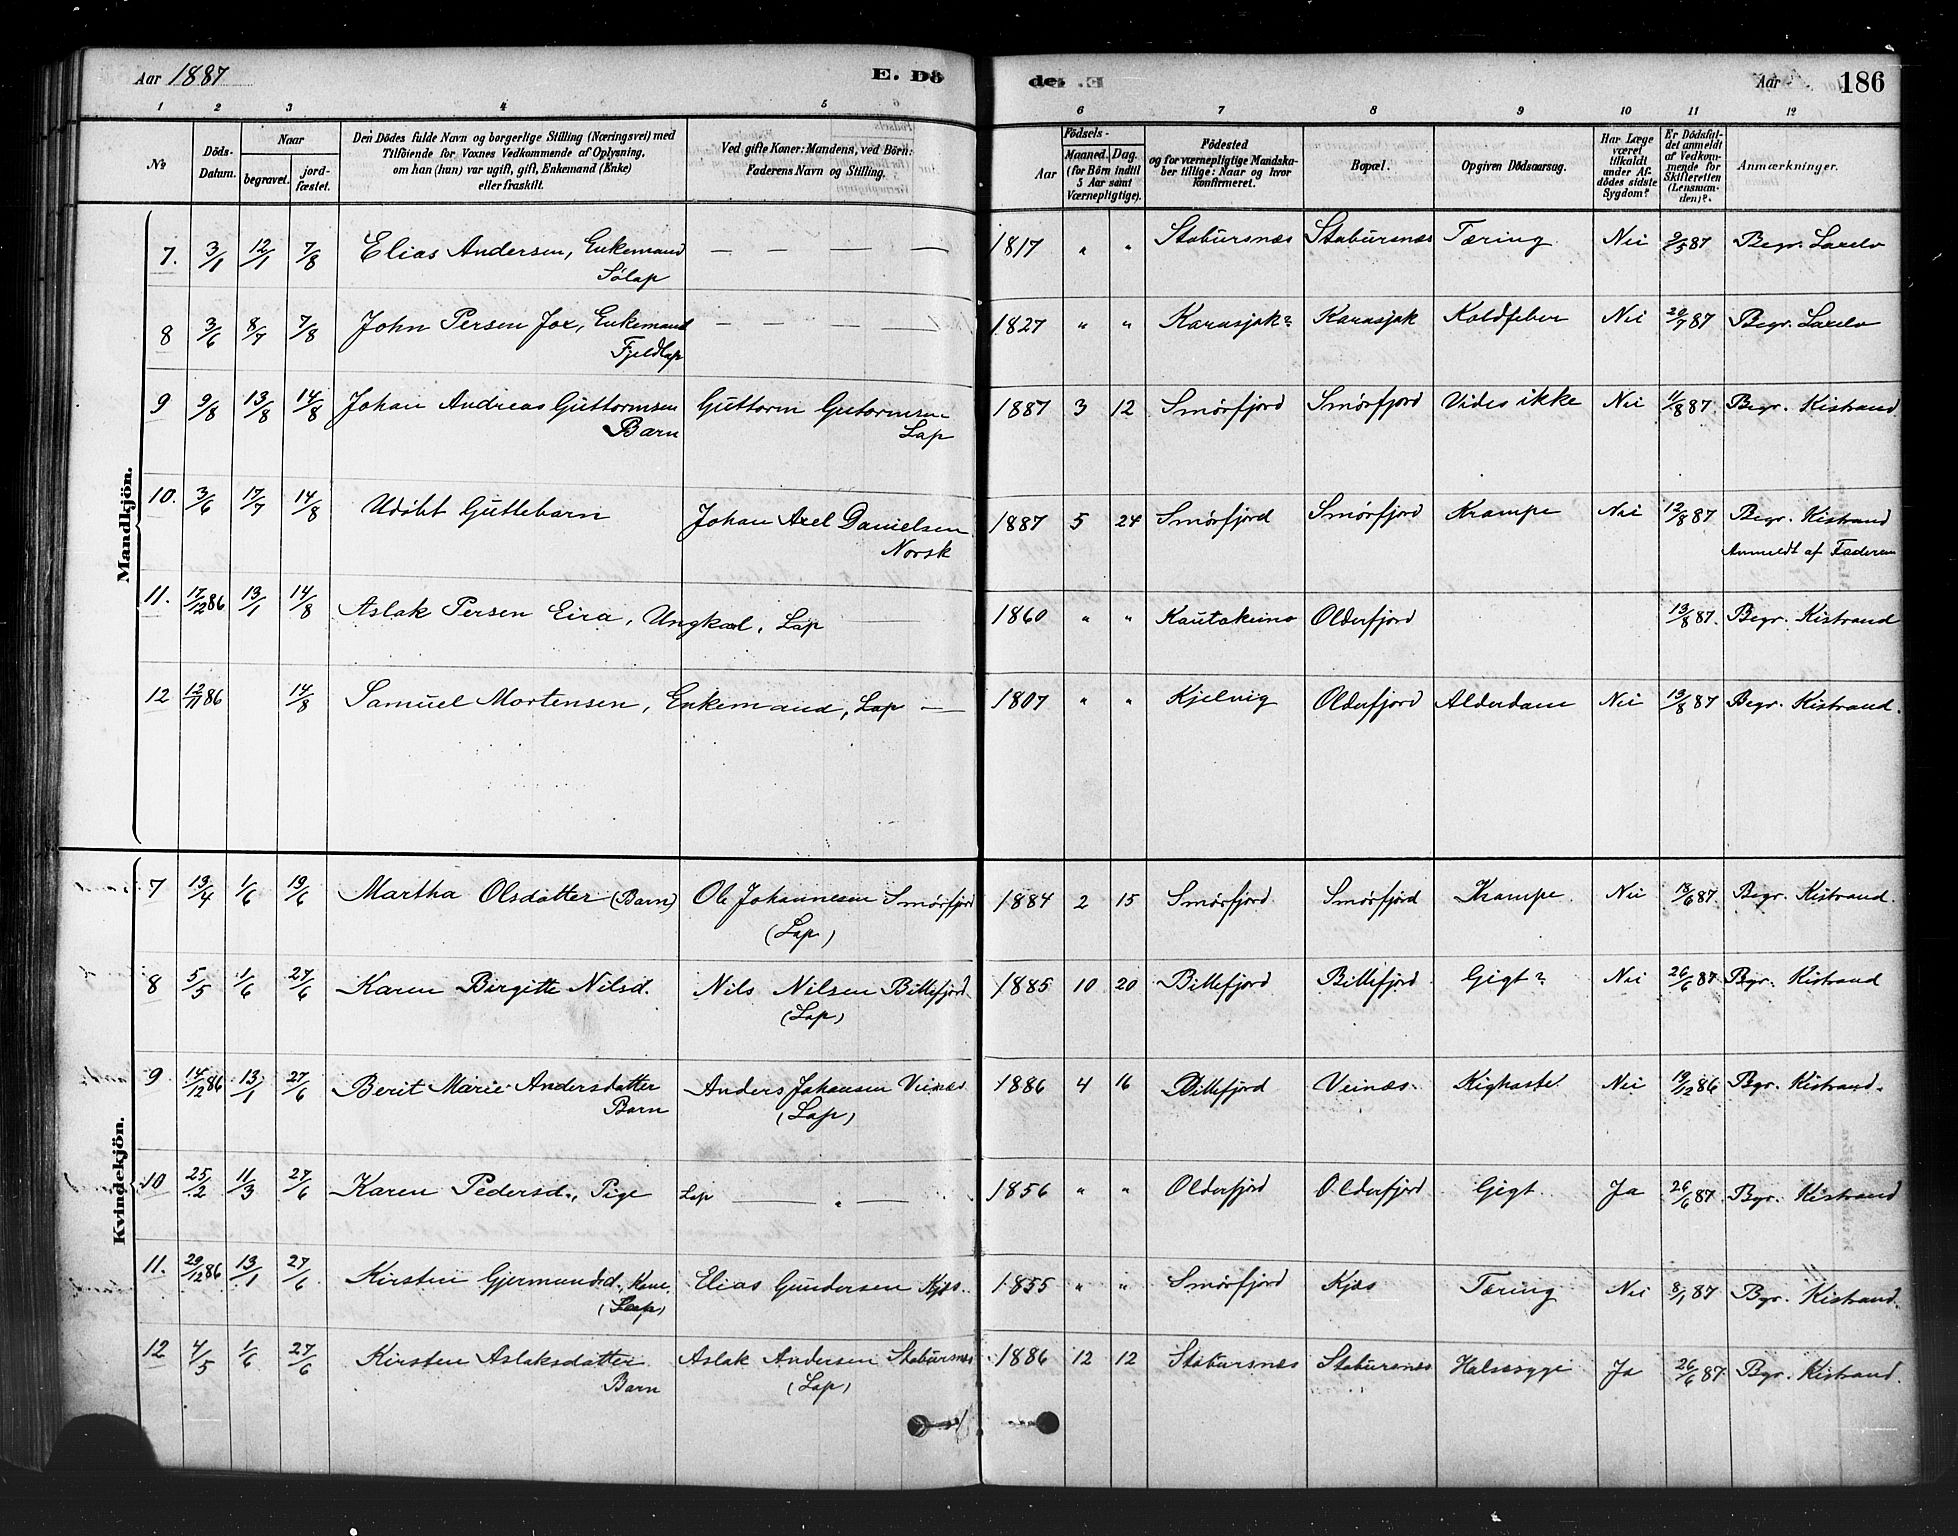 Aar 1887 E. Dö de. Aar 186
1 2 3 4 5 6 7 8 9 10 11 12
No. Döds-Datum. Naar begravet. jord-fæstet. Den Dödes fulde Navn og borgerlige Stilling (Næringsvei) med Tilföiende for Voxnes Vedkommende af Oplysning, om han (hun) var ugift, gift, Enkemand (Enke) eller fraskilt. Ved gifte Koner: Mandens, ved Börn: Faderens Navn og Stilling. Aar Födsels- Maaned. Dag. (for Börn indtil 5 Aar samt Værnepligtige). Födested og for værnepligtige Mandskaber tillige: Naar og hvor konfirmeret. Bopæl. Opgiven Dödsaarsag. Har Læge været tilkaldt under Afdödes sidste Sygdom? Er Dödsfaldet anmeldt af Vedkommende for Skifteretten (Lensmanden)? Anmærkninger.
Mandkjön.
7. 3/1 12/1 7/8 Elias Andersen, Enkemand — — — — 1817 " " Stabursnæs Stabursnæs Tæring Nei 9/5 87 Begr. Laxelv
Sölap
8 3/6 8/7 7/8 John Persen Jox, Enkemand — — — — 1827 " " Karasjok? Karasjok Koldfeber Nei 20/7 87 Begr. Laxelv
Fjeldlap
9 9/8 13/8 14/8 Johan Andreas Guttormsen Guttorm Guttormsen 1887 3 12 Smörfjord Smörfjord Vides ikke Nei 11/8 87 Begr. Kistrand
Barn Lap
10. 3/6 17/7 14/8 Udöbt Guttebarn Johan Axel Danielsen 1887 5 24 Smörfjord Smörfjord Krampe Nei 12/8 87 Begr. Kistrand
Norsk Anmeldt af Faderen
11. 17/12 86 13/1 14/8 Aslak Persen Eira, Ungkarl, Lap — 1860 " " Kautokeino Olderfjord 13/8 87. Begr. Kistrand
12 12/11 86 14/8 Samuel Mortensen, Enkemand, Lap — 1807 " " Kjelvig Olderfjord Alderdom Nei 13/8 87 Begr. Kistrand.
Kvindekjön.
7 13/4 1/6 19/6 Martha Olsdatter (Barn) Ole Johannesen Smörfjord 1884 2 15 Smörfjord Smörfjord Krampe Nei 18/6 87 Begr. Kistrand.
(Lap)
8 5/5 1/6 27/6 Karen Birgitte Nilsd. Nils Nilsen Billefjord 1885 10 20 Billefjord Billefjord Gigt? Nei 26/6 87 Bgr. Kistrand
(Lap)
9 14/12 86 13/1 27/6 Berit Marie Andersdatter Anders Johansen Veinæs 1886 4 16 Billefjord Veinæs Kighoste Nei 19/12 86 Bgr. Kistrand.
Barn (Lap)
10 25/2 11/3 27/6 Karen Pedersd., Pige Lap — " — 1856 " " Olderfjord Olderfjord Gigt Ja 26/6 87 Bgr. Kistrand
11. 29/12 86 13/1 27/6 Kirsten Gjermundsd., Kone. Elias Gundersen Kjæs. 1855 " " Smörfjord Kjæs Tæring Nei 8/1 87 Bgr. Kistrand.
(Lap)
12 4/5 1/6 27/6 Kirsten Aslaksdatter Aslak Andersen Stabursnæs 1886 12 12 Stabursnæs Stabursnæs Halssyge Ja 26/6 87 Bgr. Kistrand.
Barn (Lap)